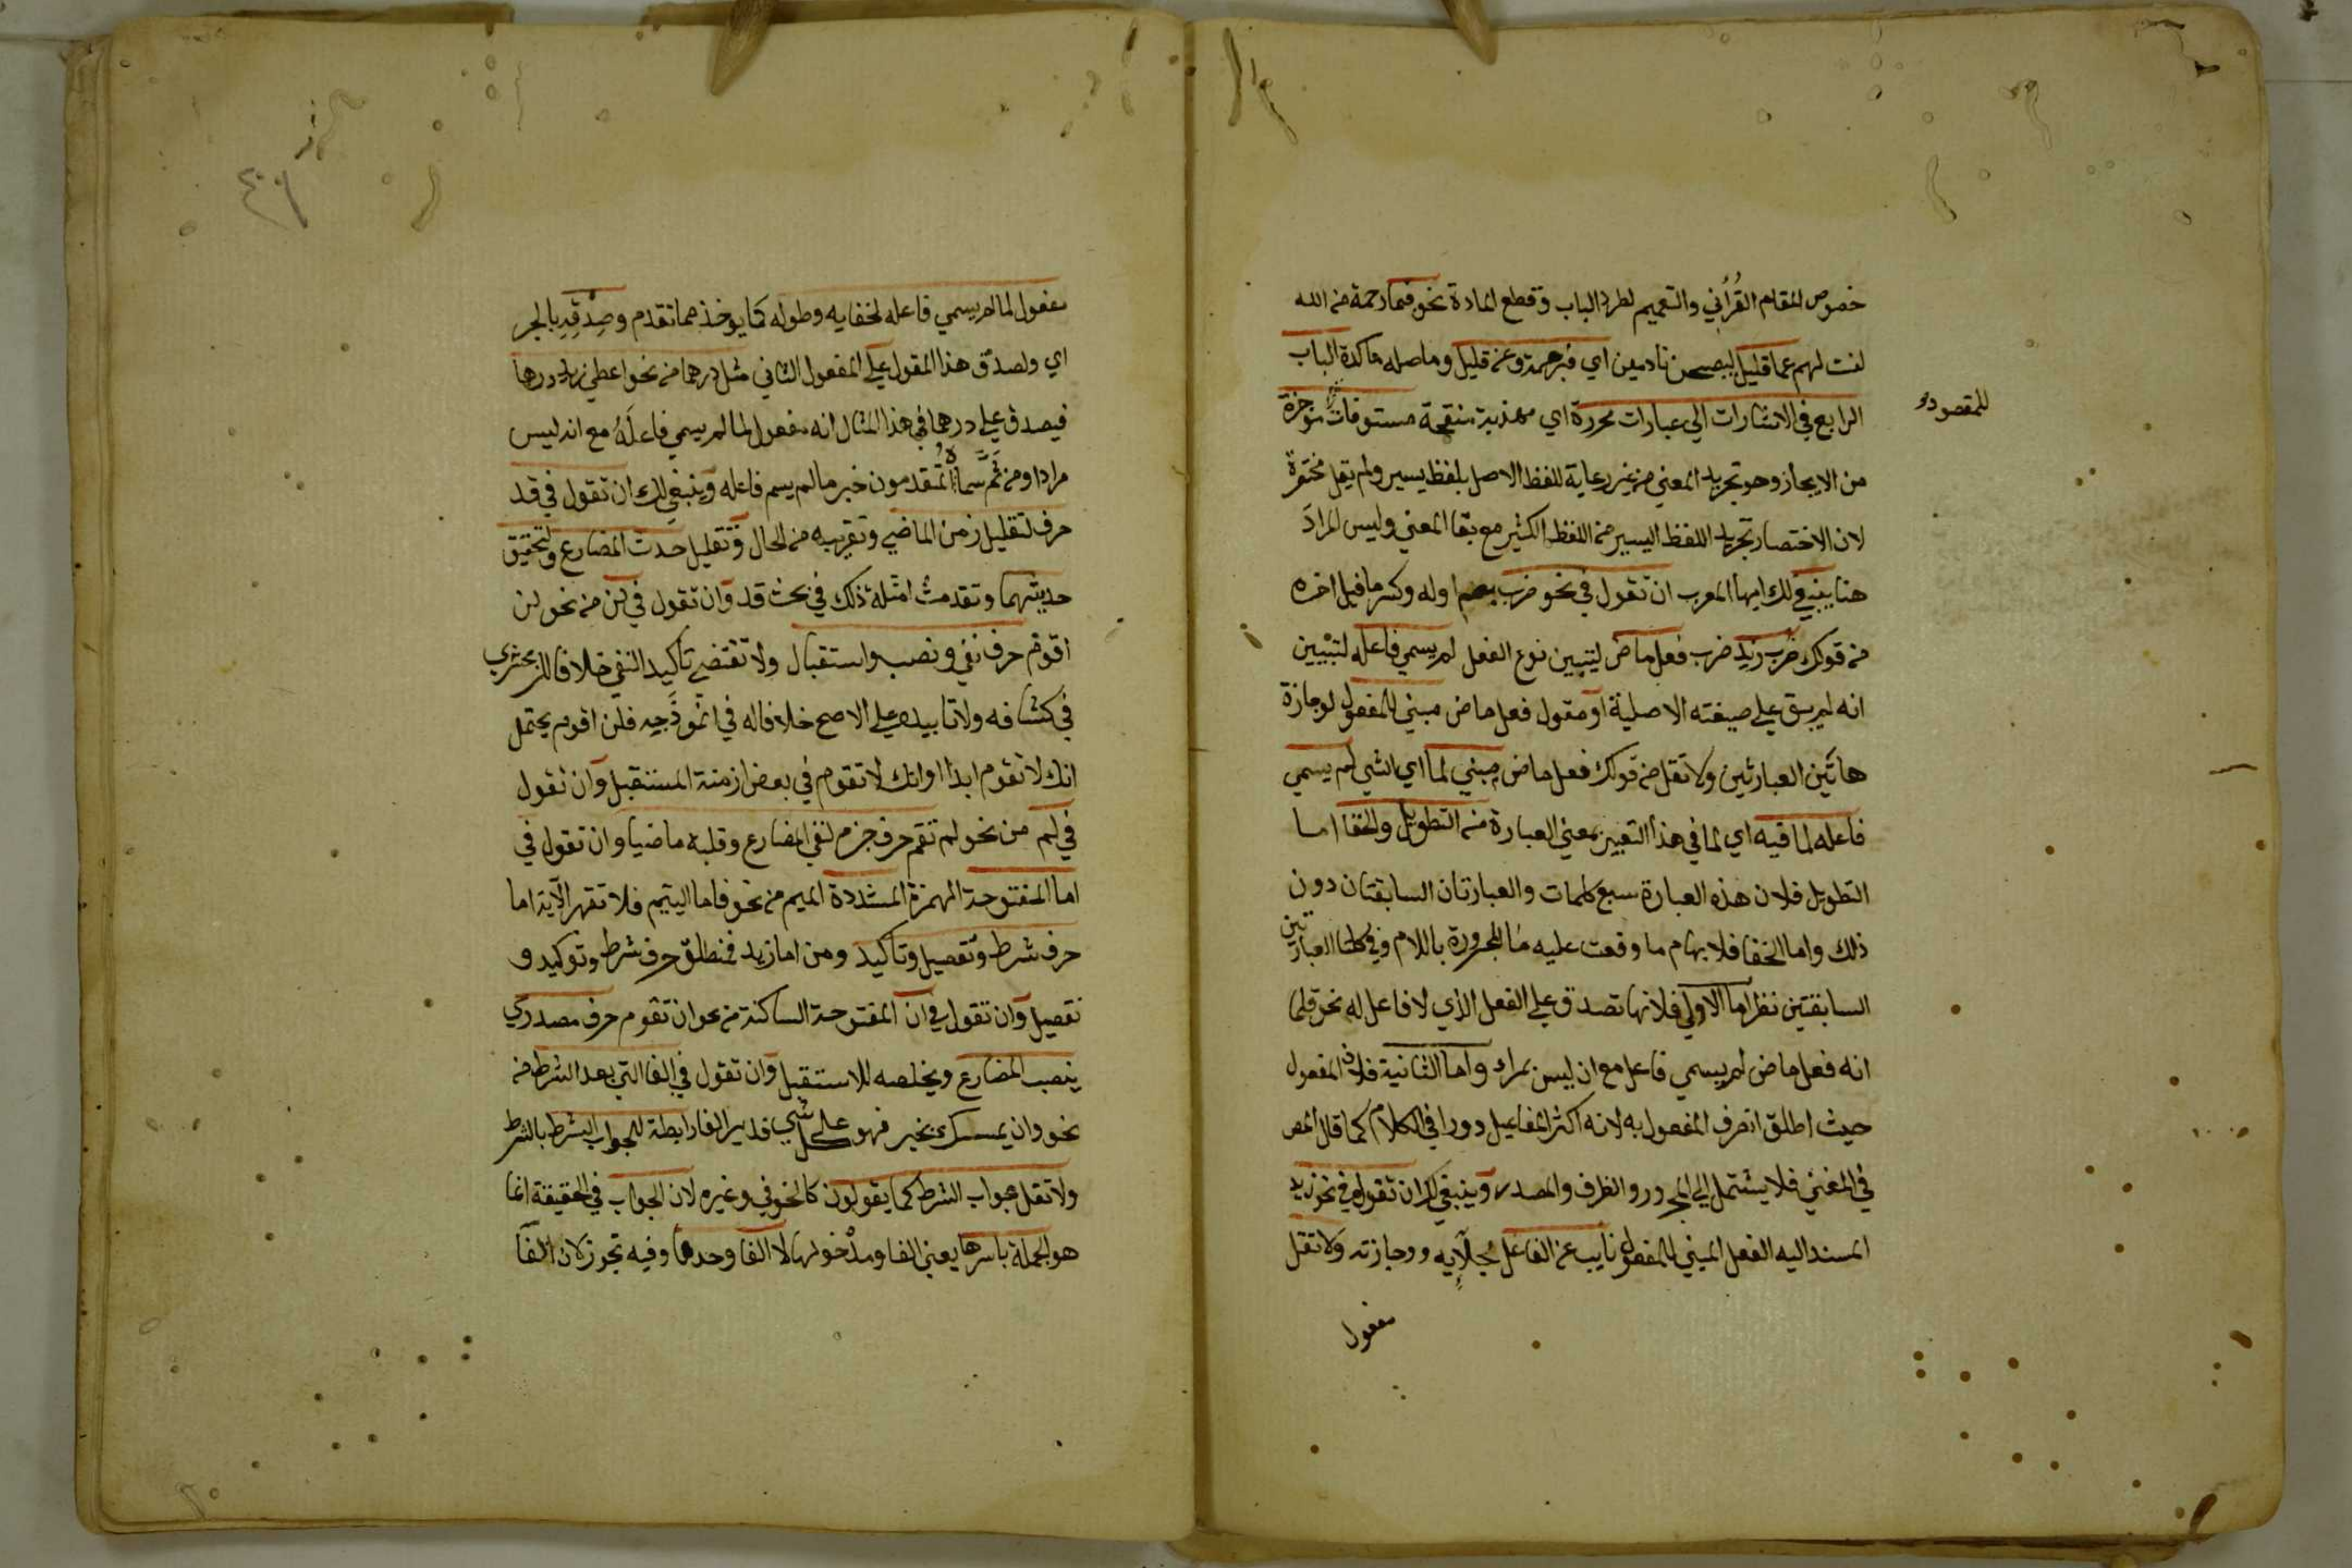 خصوص المقام القرُأني والتعميم لطرد الباب وقطع المادة نحو فبما رحمة من الله
لنت لهم عما قليل ليصبحن نادمين اي فبرحمة وعن قليل وما صله ماكدة الباب
الرابع في الاشارات الي عبارات محررة اي مهذبة منقحة مستوفات موجزة
للمقصود
من الايجاز وهو تجريد المعني من غير رعاية للفظ الاصل بلفظ يسير ولم يقل مختصرة
لان الاختصار تجريد اللفظ اليسير من اللفظ الكثير مع بقا المعني وليس المرادَ
هنا ينبغي لك ايها المعرب ان تقول في نحو ضرب بضم اوله وكسر ما قبل اخره
من قولك ضُرب زيد ضرب فعل ماض ليتبين نوع الفعل لم يسمي فاعله لتبْيين
انه لم يبق علي صيغته الاصلية او مقول فعل ماض مبني للمفعول لوجازة
هاتَين العبارتين ولا تقل من قولك فعل ماض مبني لما اي لشي لم يسمي
فاعله لما فيه اي لما في هذا التعبير بمعني العبارة من التطويل والخفا اما
التطويل فلان هذه العبارة سبع كلمات والعبارتان السابقتان دون
ذلك واما الخفا فلابهام ما وقعت عليه مَا المجرورة باللام وفي كلتا العبارتين
السابقتين نظر اما الاولي فلانها تصدق علي الفعل الذي لا فاعل له نحو قلما
انه فعل ماض لم يسمي فاعل مع ان ليس بمراد واما الثانية فلان المفعول
حيث اطلق انصرف المفعول به لانه اكثر المفاعيل دورا في الكلام كما قال المص
في المغني فلا يشتمل الي المجرور والظرف والمصدر وينبغي لك ان تقول في نحو زيد
المسند اليه الفعل المبني للمفعول نايب عن الفاعل لجلآيه ووجازته ولا تقل
مفعول
مفعول لما لم يسمي فاعله لخفايه وطوله كما يوخذ مما تقدم وصِدْقِهِ بالجر
اي ولصدق هذا المقول علي المفعول الثاني مثل درهما من نحو اعطي زيد درهما
فيصدق علي درهما في هذا المثال انه مفعول لما لم يسمي فاعلَهُ مع انه ليس
مرادا ومن ثَمَّ سَمَّاه المُتقدمون خبر ما لم يسم فاعله وينبغي لك ان تقول في قد
حرف لتقليل زمن الماضي وتقريبه من الحال وتقليل حدث المضارع ولتحقيق
حديثهما وتقدمت امثلة ذلك في بحث قد وان تقول في لن من نحو لن
اقوم حرف نفي ونصب واستقبال ولا تقتضي تاكيد النفي خلافا للزمخشري
في كشافه ولا تابيده علي الاصح خلافا له في انموذَجِه فلن اقوم يحتمل
انك لا تقوم ابدا او انك لا تقوم في بعض ازمنة المستقبل وان تقول
في لم من نحو لم تقم حرف جزم لنفي المضارع وقلبه ماضيا وان تقول في
اما المفتوحة الهمزة المشددة الميم من نحو فاما اليتيم فلا تقهر الآية اما
حرف شرط وتفصيل وتاكيد ومن اما زيد فمنطلق حرف شرط وتوكيد و
تفصيل وان تقول في ان المفتوحة الساكنة من نحو ان تقوم حرف مصدري
ينصب المضارع ويخلصه للاستقبل وان تقول في الفا التي بعد الشرط من
نحو وان يمسسك بخير فهو علي كل شي قدير الفا رابطة للجواب الشرط بالشرط
ولا تقل جواب الشرط كما يقولون كالحوفي وغيره لان الجواب في الحقيقة انما
هو الجملة باسرها يعني الفا ومدْخولها لا الفا وحدها وفيه تجوز لان الفآ